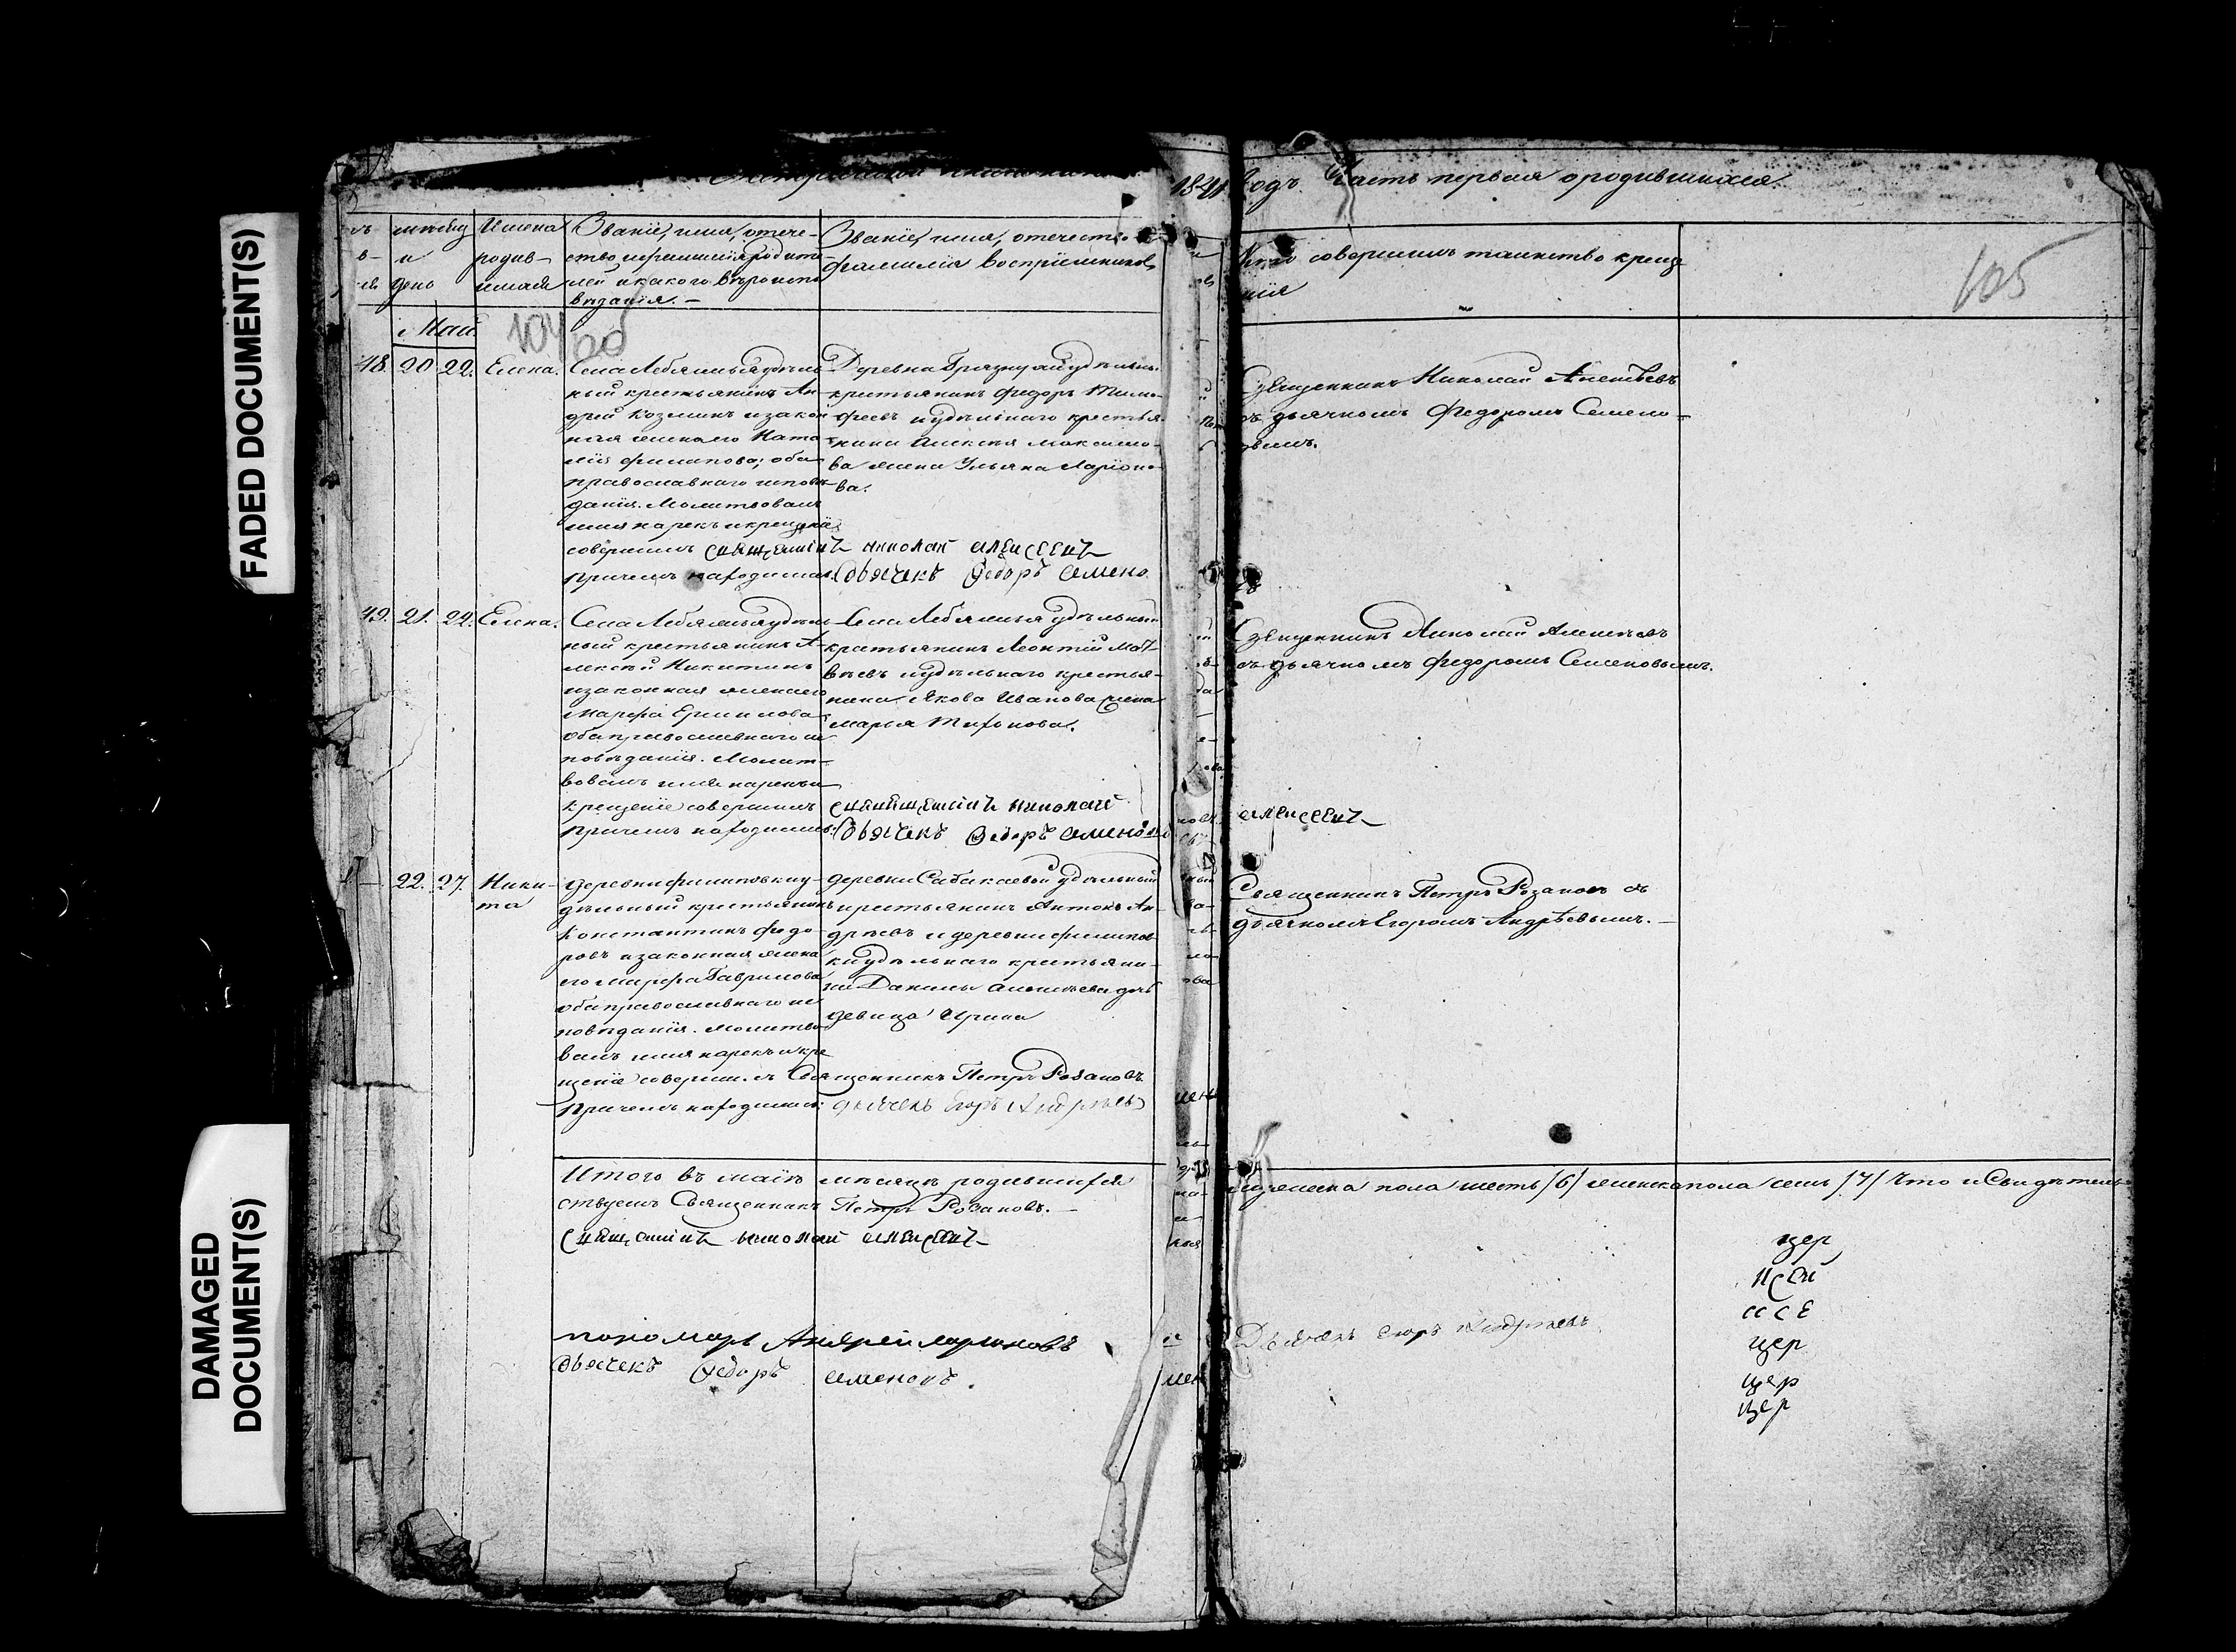 FADED DOCUMENT(S)
DAMAGED DOCUMENT(S)
Метрической книги
1841 годъ. Часть первая о родившихся.
Имена родив- шихся
Званіе, имя, отече- ство, и фамилія родите- лей и какого вѣроиспо- вѣданія. —
Званіе, имя, отечество фамилія воспріемниковъ
Кто совершилъ таинство креще нія
105
и день
Май
104
48. 20 22. Елена.
Села Лебяжья удѣль-
ный крестьянинъ Ан-
дрей Козминъ и закон-
ная жена его Ната-
лія Филипова; оба
православнаго исповѣ-
данія. Молитвовалъ
имя нарекъ и крещеніе
совершилъ священникъ николай алексеевъ
При чемъ находился: дьячекъ Федоръ Семено
Деревни Грязнухи удѣльный
крестьянинъ Федоръ Тимо-
феевъ и удѣльнаго крестья-
нина Алексѣя Максимо-
ва жена Ульяна Ларіоно-
ва.
Священникъ Николай Алексѣевъ
съ дьячкомъ Федоромъ Семено-
вымъ.
49. 21. 24. Елена.
Села Лебяжья удѣль-
ный крестьянинъ А-
лексѣй Никитинъ
и законная жена его
Марфа Ермилова
оба православнаго ис
повѣданія. Молит-
вовалъ имя нарекъ и
крещеніе совершилъ священникъ николай алексеевъ
При чемъ находился: дьячекъ Федоръ Семеновъ
Села Лебяжья удѣльный
крестьянинъ Леонтій Мат-
вѣевъ и удѣльнаго крестья-
нина Якова Иванова жена
Марья Тихонова.
Священникъ Николай Алексѣевъ
съ дьячкомъ Федоромъ Семеновымъ.
22. 27. Ники-
та
деревни Филиповки у-
дѣльный крестьянинъ
Константинъ Федо-
ровъ и законная жена
его Марфа Гаврилова
оба православнаго ис
повѣданія. Молитво-
валъ имя нарекъ и кре
щеніе совершилъ Священникъ Петръ Розановъ.
При чемъ находился: дьячекъ Егоръ Андреевъ
деревни Сабакаевой удѣльный
крестьянинъ Антонъ Ан-
дрѣевъ и деревни Филипов
ки удѣльнаго крестьяни-
на Данилы Алексѣева дочь
девица Ирина
Священникъ Петръ Розановъ съ
дьячкомъ Егоромъ Андрѣевымъ. —
Итого въ маіѣ мѣсяцѣ родившихся мужеска пола шесть /6/ женска пола семь /7/ Что и Свидѣтель-
ствуемъ Священникъ Петръ Розановъ. —
священникъ николай алексеевъ
пономарь Андрей Ларионовъ
Дьячекъ Егоръ Андреевъ
дьячекъ Федоръ семеновъ.
цер
цер
цер
цер